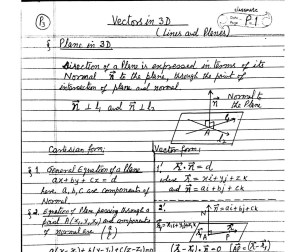 classmate
Date
Page P.1
P3
Vectors in 3D
(Lines and Planes)
§ Plane in 3D
Direction of a Plane is expressed in terms of its
Normal n⃗ to the plane, through the point of
intersection of plane and normal.
n⃗ ⊥ l₁ and n⃗ ⊥ l₂
n⃗
Normal to
the Plane
A
l₂
Cartesian form:
Vector form:
§ 1. General Equation of a Plane
ax + by + cz = d
here a, b, c are components of
Normal.
1. r⃗ . n⃗ = d
where r⃗ = xi + yj + zk
and n⃗ = ai + bj + ck
§ 2. Equation of Plane passing through a
point A(x₁, y₁, z₁) and components
of normal are (a b c)
2.
n⃗ = ai + bj + ck
a(x-x₁) + b(y-y₁) + c(z-z₁) = 0